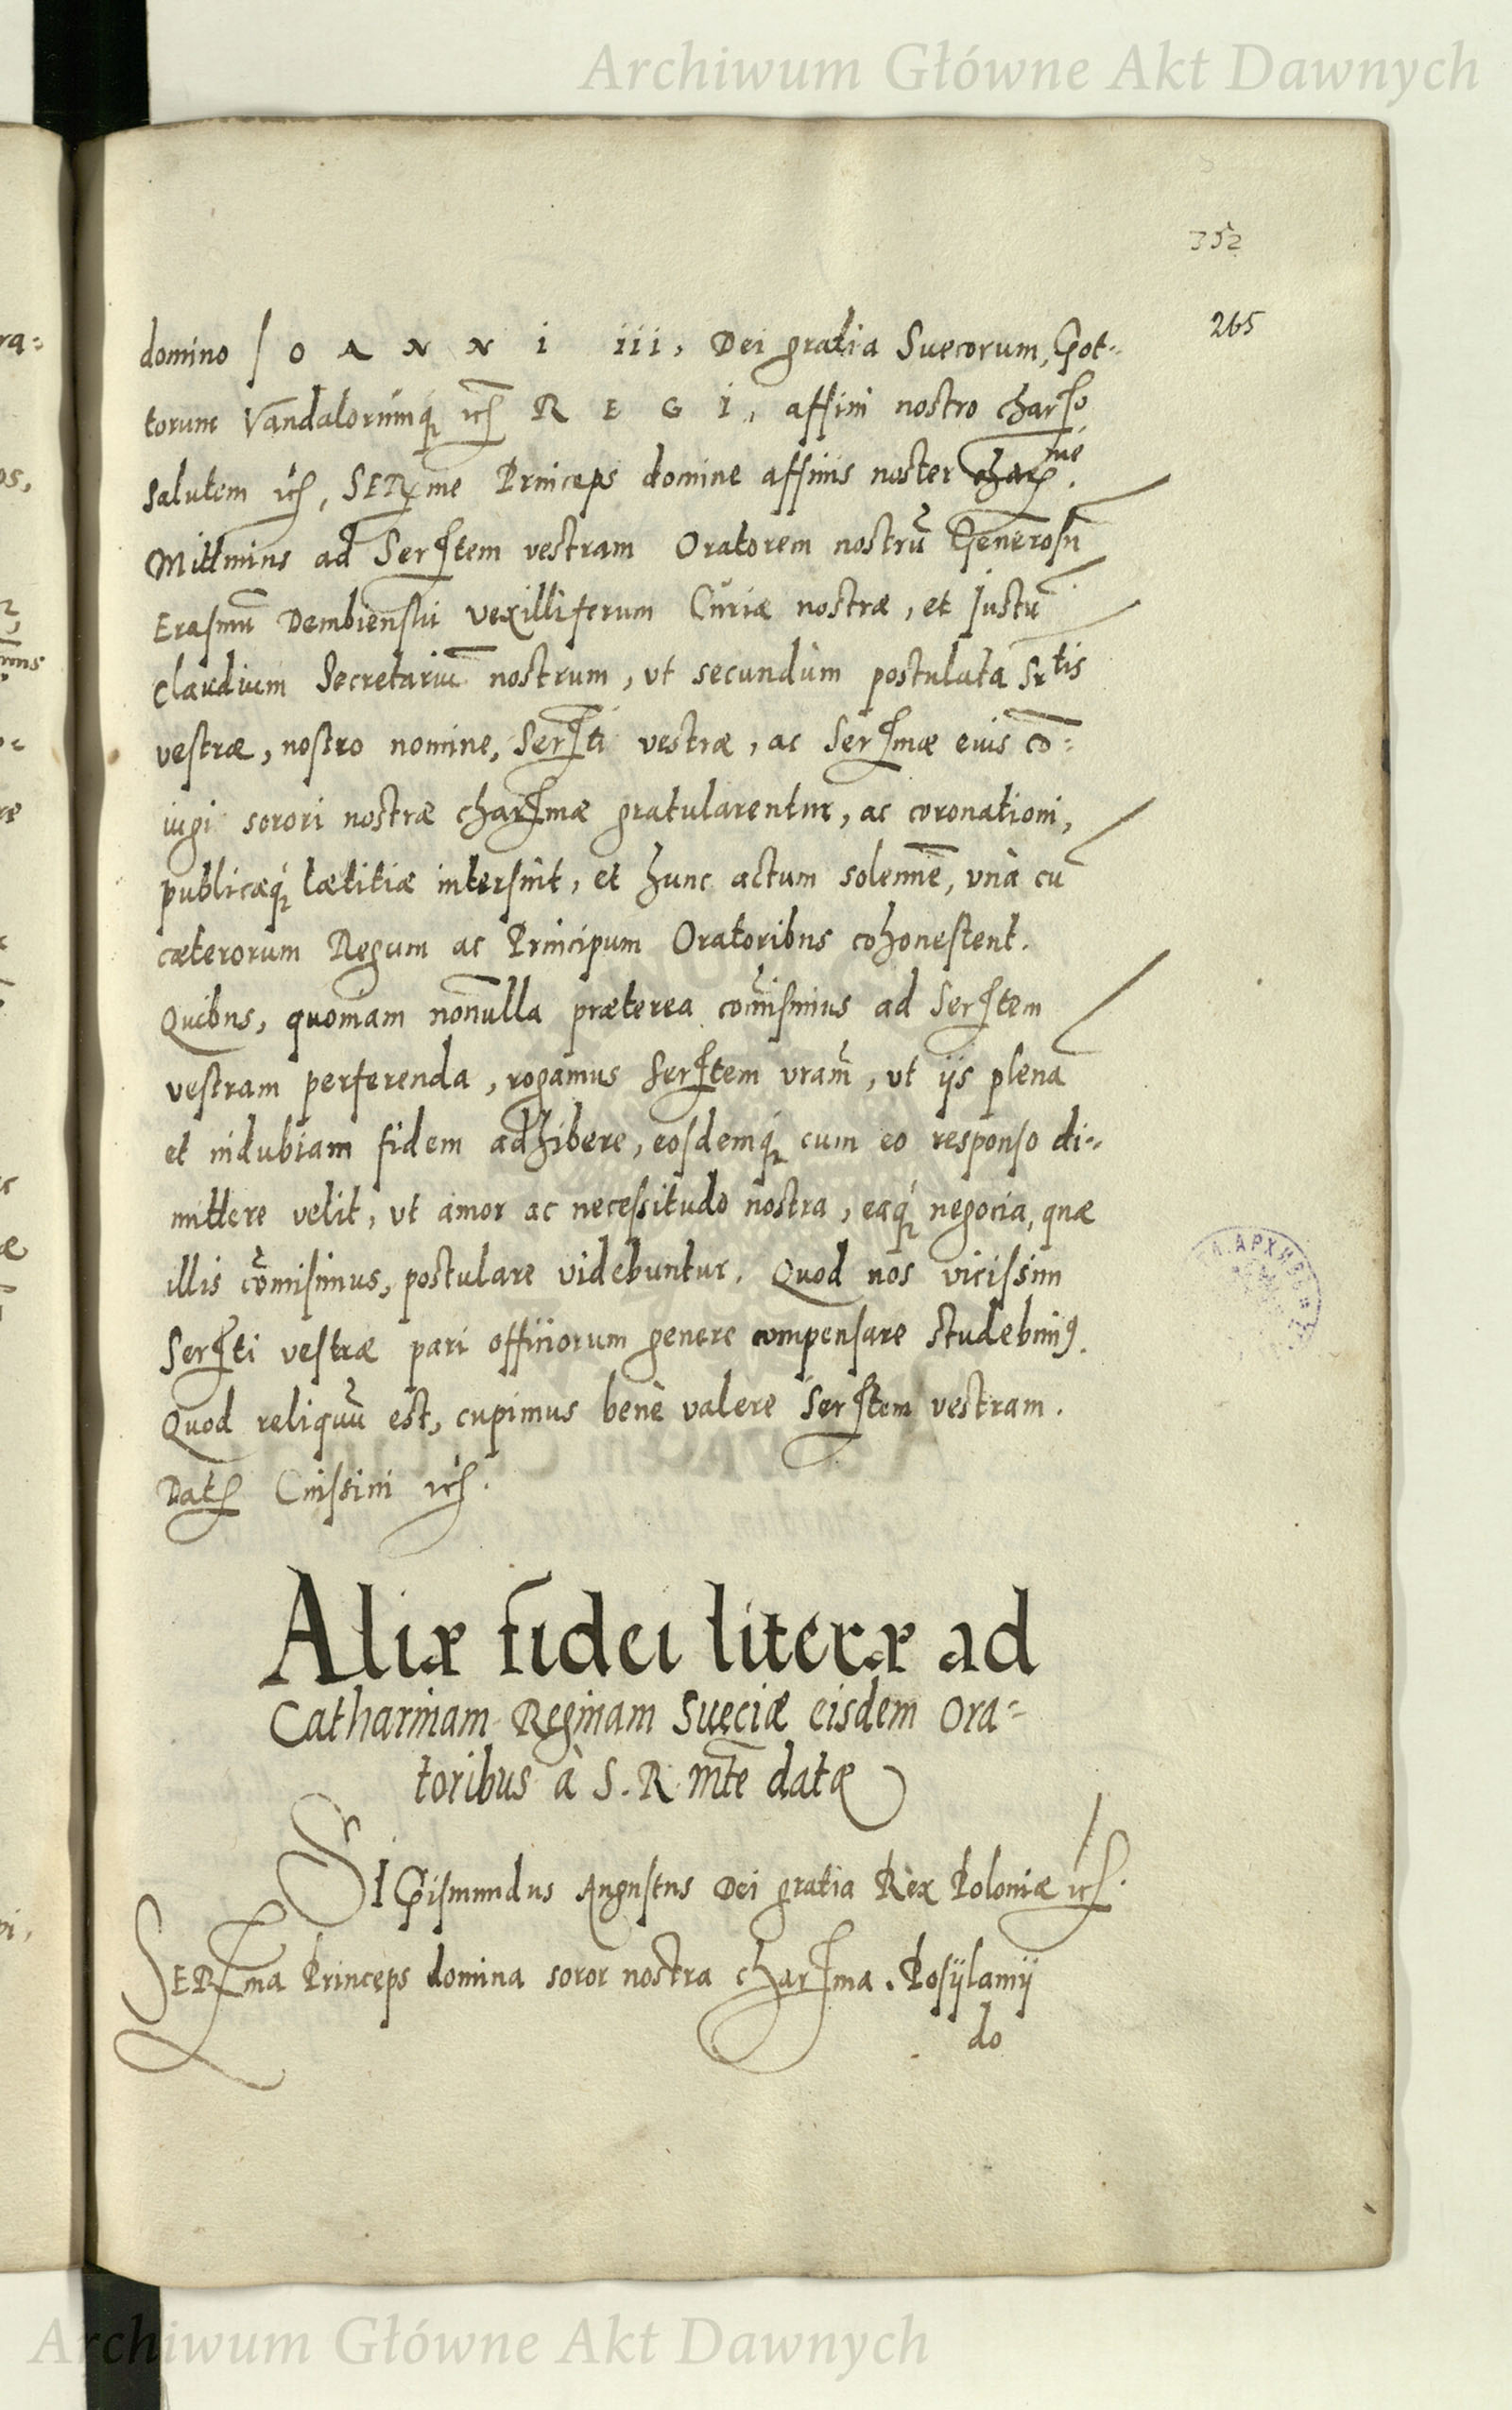 Archiwum Główne Akt Dawnych
352
265
domino IOANNI iii, Dei gratia Suecorum, Got-
torum Vandalorumq; etc REGI, affini nostro charso
salutem etc, SERme Princeps domine affinis noster charme.
Mittimus ad Sertem vestram Oratorem nostrū Generosū
Erasmū Dembienskii vexilliferum Curiæ nostræ, et Justū
Claudium Secretariū nostrum, ut secundùm postulata Srtis
vestræ, nostro nomine, Serti vestræ, ac Sermæ eius cō-
iugi sorori nostræ charmæ gratularentur, ac coronationi,
publicæq; lætitiæ intersint, et hunc actum solennē, unà cū
cæterorum Regum ac Principum Oratoribus cohonestent.
Quibus, quoniam nonnulla præterea com̄isimus ad Sertem
vestram perferenda, rogamus Sertem vram̄, ut iis plenā
et indubiam fidem adhibere, eosdemq; cum eo responso di-
mittere velit, ut amor ac necessitudo nostra, eaq; negocia, quæ
illis com̄isimus, postulare videbuntur. Quod nos vicissim
Serti vestræ pari officiorum genere compensare studebimꝰ.
Quod reliquū est, cupimus benè valere Sertem vestram.
Dat Cnissini etc.
Aliæ fidei literæ ad
Catharinam Reginam Sueciæ eisdem Ora-
toribus à S. R. mte datæ
SIGismundus Augustus Dei gratia Rex Poloniæ etc.
SERma Princeps domina soror nostra charma. Posÿlamÿ
do
Archiwum Główne Akt Dawnych